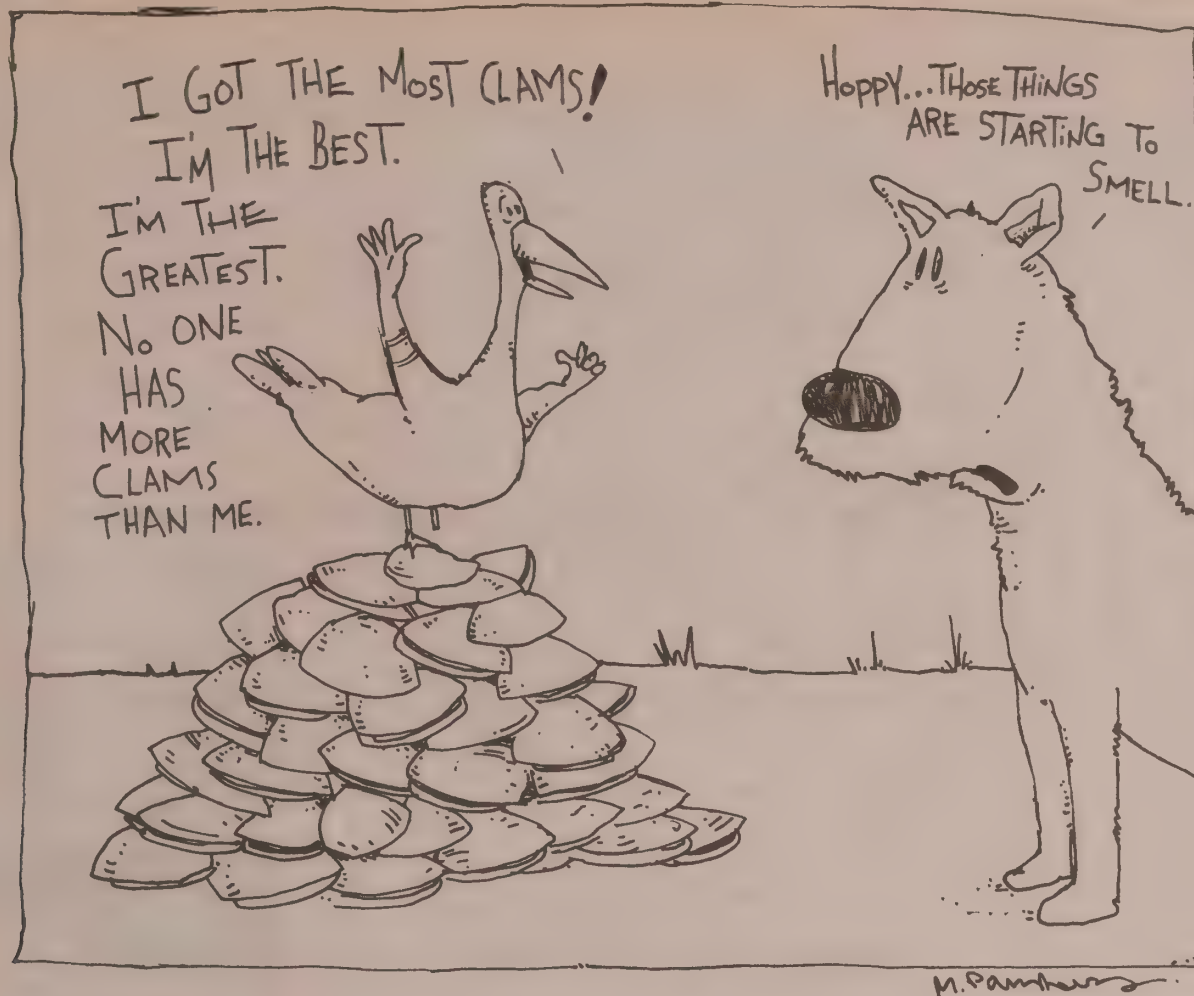 I GOT THE MOST CLAMS!
I'M THE BEST.
I'M THE
GREATEST.
NO ONE
HAS
MORE
CLAMS
THAN ME.
HOPPY...THOSE THINGS
ARE STARTING TO
SMELL.